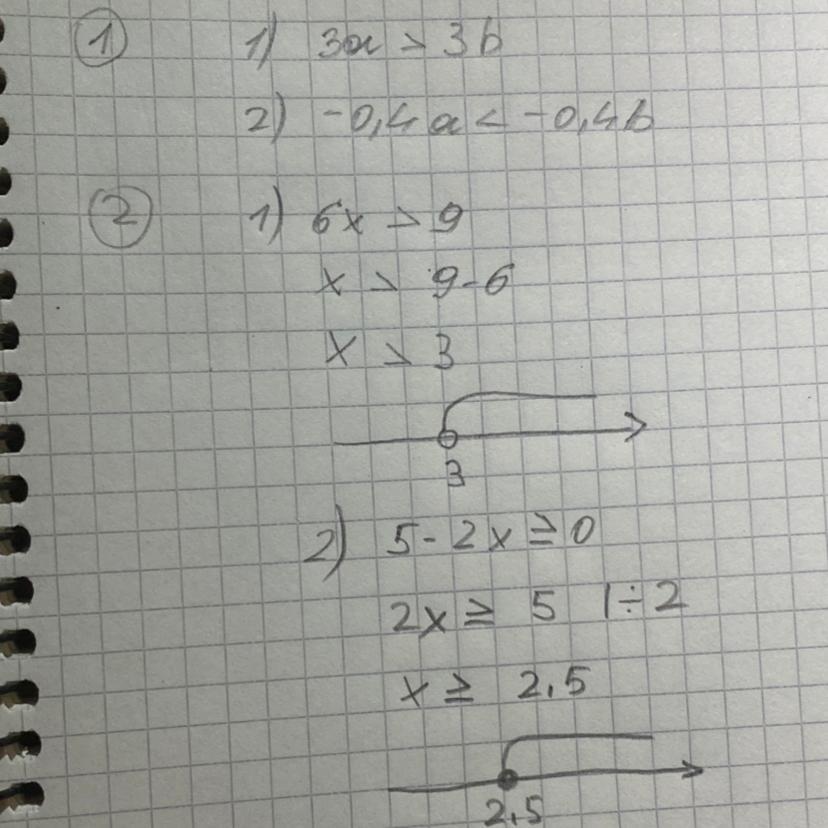 ① 1) 3a > 3b
2) -0,4a < -0,4b
② 1) 6x > 9
x > 9-6
x > 3
3
2) 5-2x ≥ 0
2x ≥ 5 |÷2
x ≥ 2,5
2,5